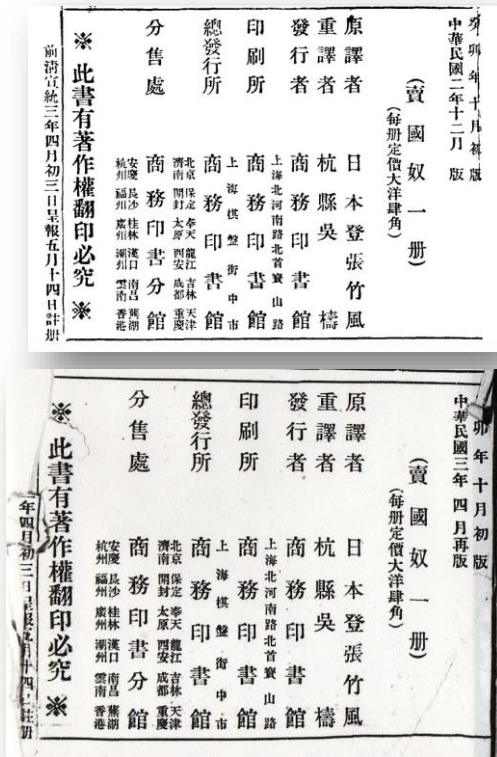 癸卯年十月初版
中華民國二年十二月 版
(賣國奴一册)
(每册定價大洋肆角)
原譯者 日本登張竹風
重譯者 杭縣吳檮
發行者 商務印書館
上海北河南路北首寶山路
印刷所 商務印書館
上海棋盤街中市
總發行所 商務印書館
北京 保定 奉天 龍江 吉林 天津
濟南 開封 太原 西安 成都 重慶
分售處 商務印書分館
安慶 長沙 桂林 漢口 南昌 蕪湖
杭州 福州 廣州 潮州 雲南 香港
※ 此書有著作權翻印必究 ※
前清宣統三年四月初三日呈報五月十四日註册
卯年十月初版
中華民國三年四月再版
(賣國奴一册)
(每册定價大洋肆角)
原譯者 日本登張竹風
重譯者 杭縣吳檮
發行者 商務印書館
上海北河南路北首寶山路
印刷所 商務印書館
上海棋盤街中市
總發行所 商務印書館
北京 保定 奉天 龍江 吉林 天津
濟南 開封 太原 西安 成都 重慶
分售處 商務印書分館
安慶 長沙 桂林 漢口 南昌 蕪湖
杭州 福州 廣州 潮州 雲南 香港
※ 此書有著作權翻印必究 ※
年四月初三日呈報五月十四日註册